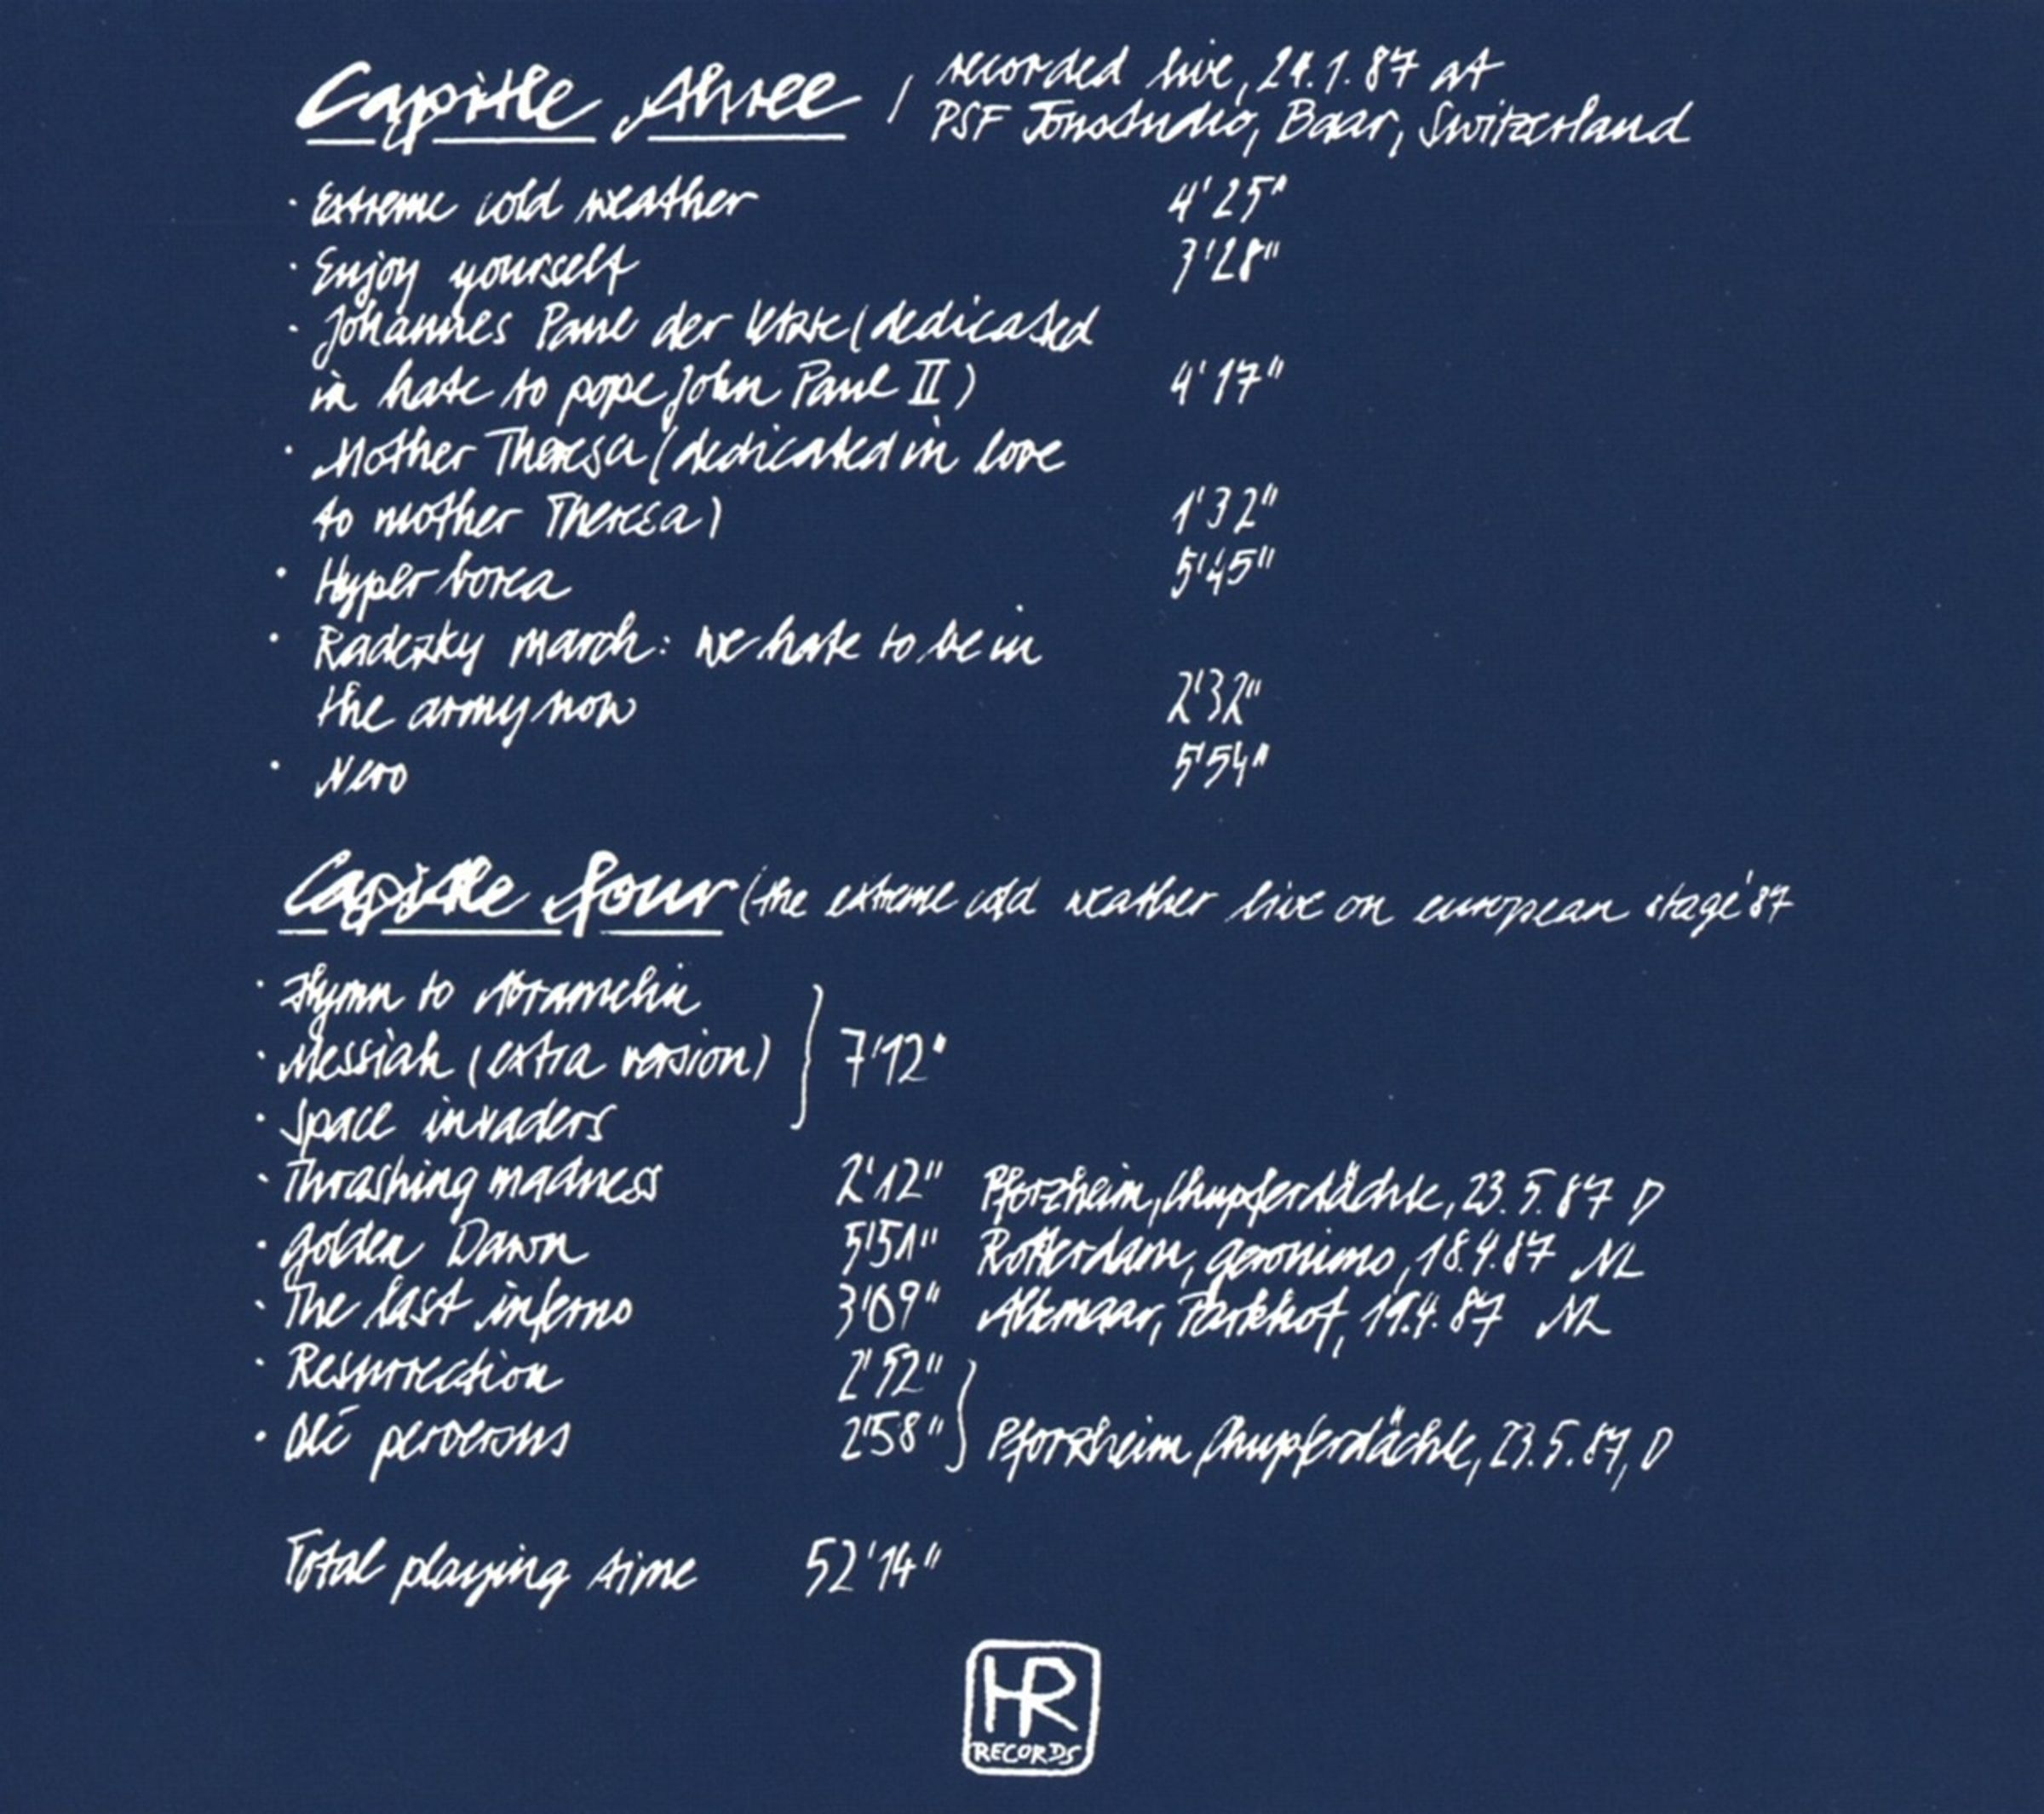 Capitle three / recorded live, 24.1.87 at
PSF Tonstudio, Baar, Switzerland
· Extreme cold weather 4'25"
· Enjoy yourself 3'28"
· Johannes Paul der letzte (dedicated
in hate to pope John Paul II) 4'17"
· Mother Theresa (dedicated in love
to mother Theresa) 1'32"
· Hyper borea 5'45"
· Radezky march: we hate to be in
the army now 2'32"
· Nero 5'54"
Capitle four (the extreme cold weather live on european stage '87
· Hymn to Abramelin
· Messiah (extra version) } 7'12"
· Space invaders
· Thrashing madness 2'12" Pforzheim, 23.5.87 D
· Golden Dawn 5'51" Rotterdam, geronimo, 18.4.87 NL
· The last inferno 3'09" Alkmaar, Parkhof, 19.4.87 NL
· Resurrection 2'52"
· Olé perversus 2'58" } Pforzheim, 23.5.87, D
Total playing time 52'14"
HR
RECORDS